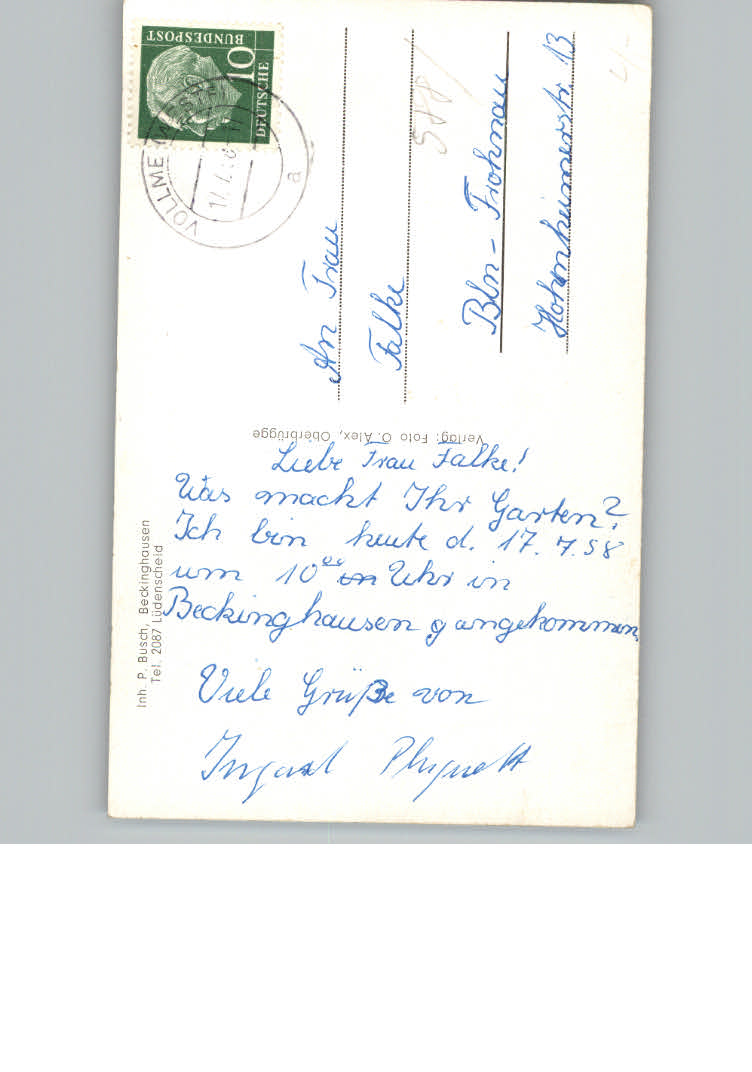 DEUTSCHE
BUNDESPOST
10
a
An Frau
Falke
Bln - Frohnau
Hohenheimerstr. 13
588/
Verlag: Foto O. Alex, Oberbrügge
Inh. P. Busch, Beckinghausen
Tel. 2087 Lüdenscheid
Liebe Frau Falke!
Was macht Ihr Garten?
Ich bin heute d. 17.7.58
um 10⁰⁰ Uhr in
Beckinghausen angekommen.
Viele Grüße von